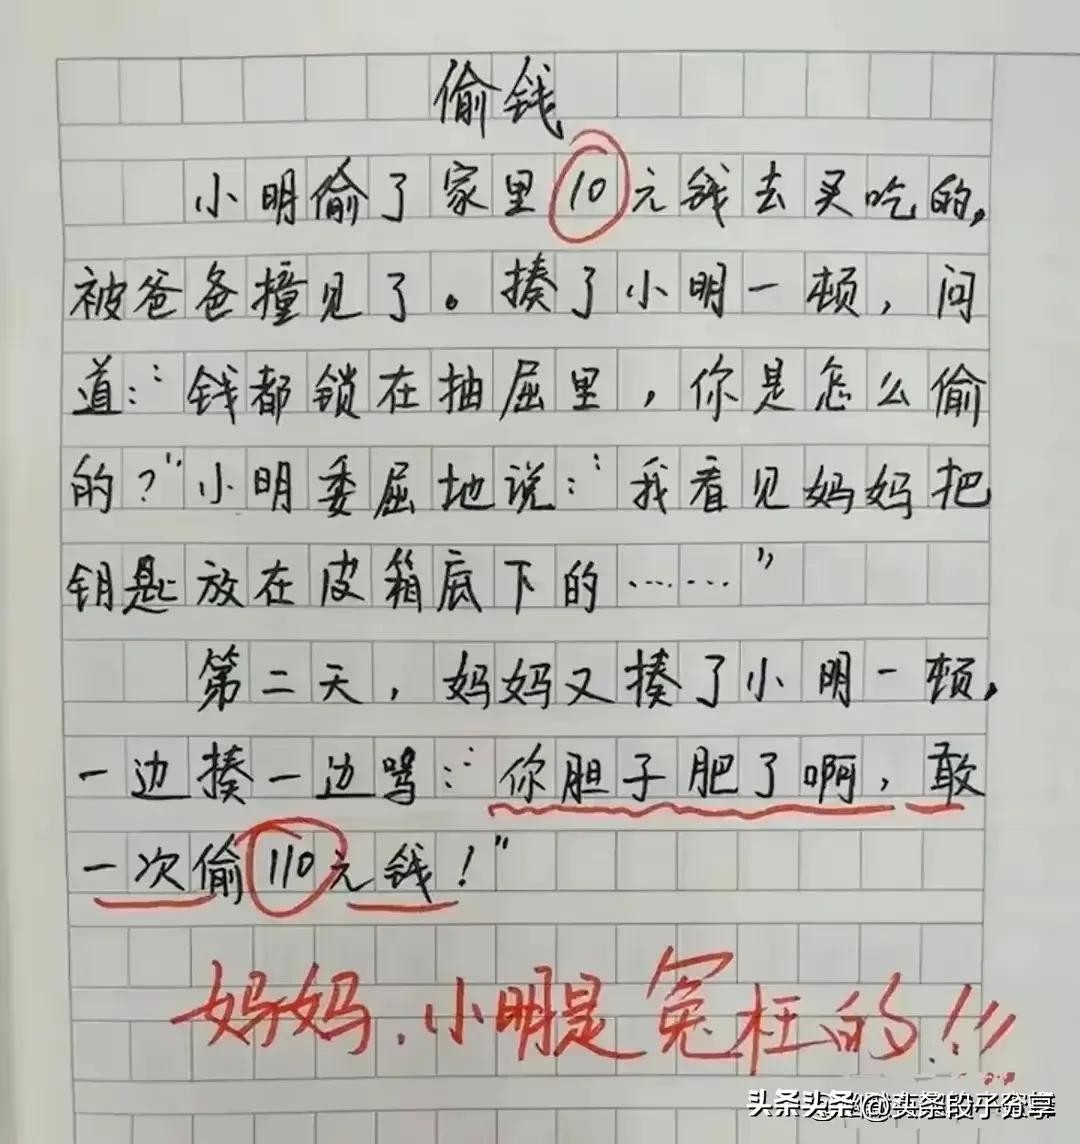 偷钱
小明偷了家里10元钱去买吃的,
被爸爸撞见了。揍了小明一顿,问
道:“钱都锁在抽屉里,你是怎么偷
的?”小明委屈地说:“我看见妈妈把
钥匙放在皮箱底下的……”
第二天,妈妈又揍了小明一顿,
一边揍一边骂:“你胆子肥了啊,敢
一次偷110元钱!”
妈妈,小明是冤枉的!!!
头条@头条段子分享